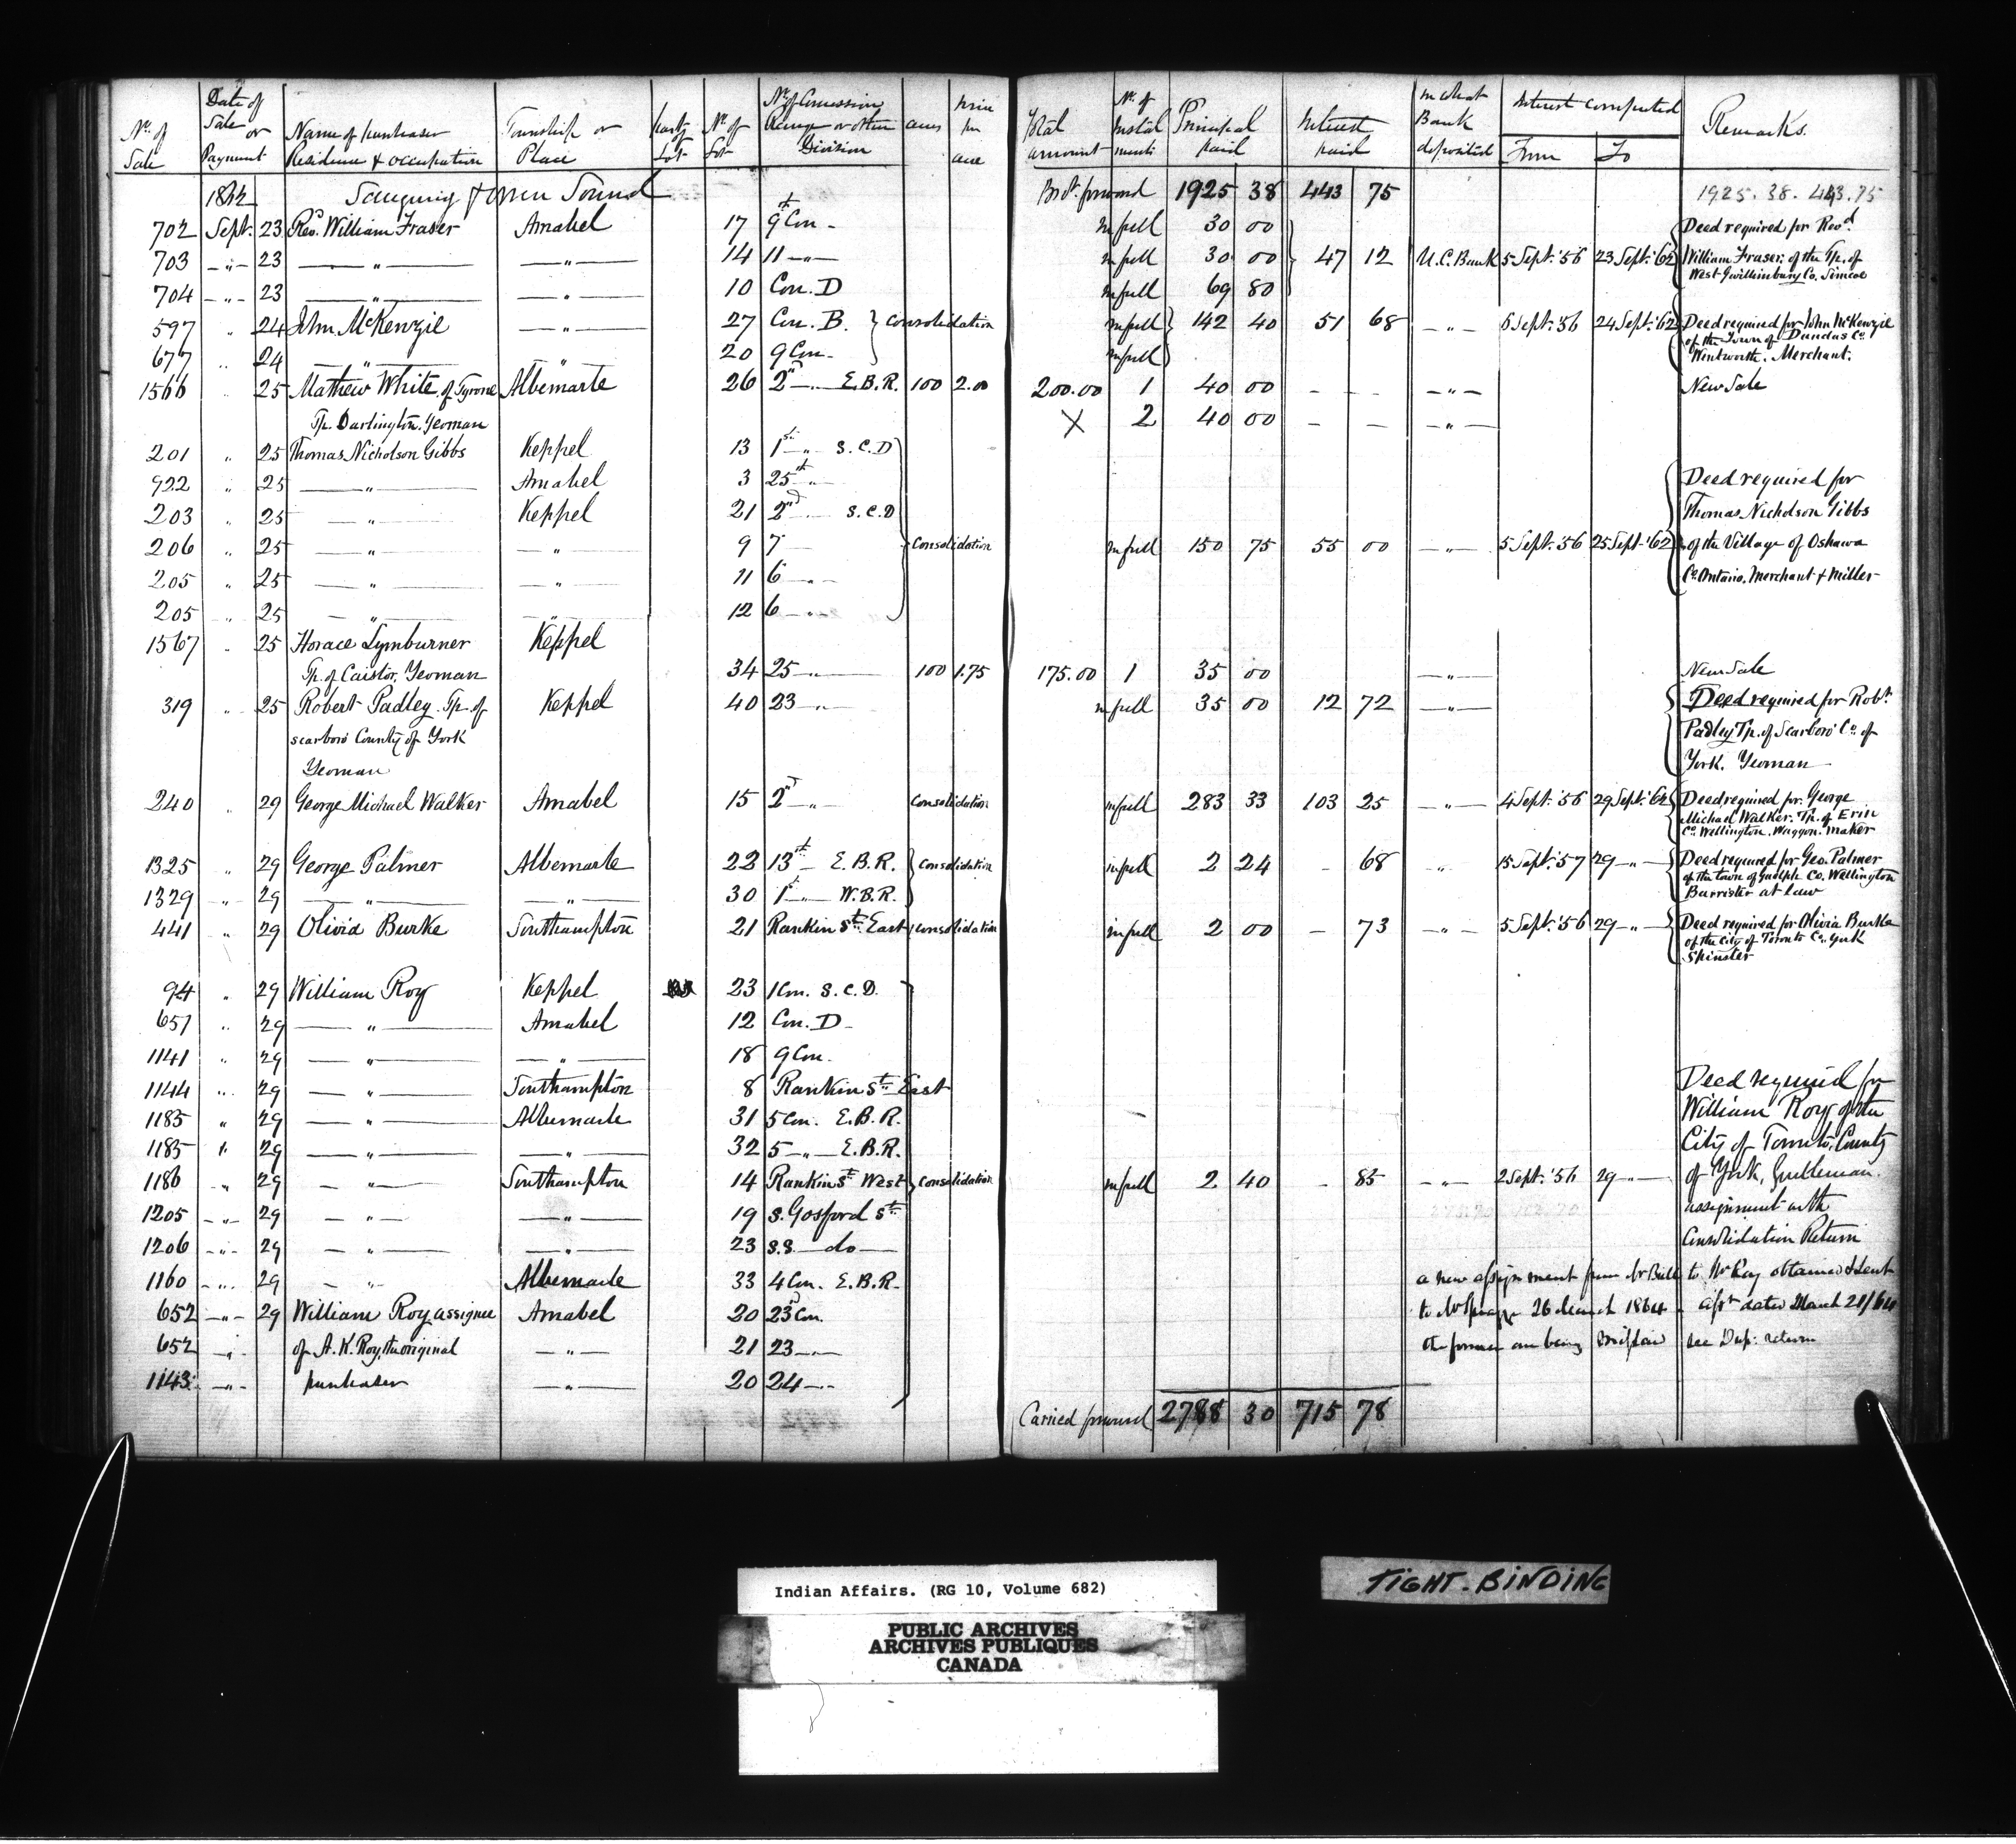 No. of Sale | Date of Sale or Payment | Name of purchaser Residence & occupation | Township or Place | Part of Lot | No. of Lot | No. of Concession Range or other Division | acres | Price per acre | Total amount | No. of Instalments | Principal paid | Interest paid | In what Bank deposited | Interest computed From | To | Remarks.
1862 Saugeeng & Owen Sound Brot. forward 1925 38 443 75 1925.38. 443.75
702 Sept. 23 Revd. William Fraser Amabel 17 9th Con - in full 30 00 Deed required for Revd.
703 — " — 23 — " — — " — 14 11 — " — in full 30 00 } 47 12 U.C. Bank 5 Sept. '56 23 Sept. '62 William Fraser, of the Tp. of
704 — " — 23 — " — — " — 10 Con. D in full 69 80 West Gwillimbury Co. Simcoe
597 " 24 John McKenzie — " — 27 Con. B. } Consolidation in full } 142 40 51 68 — " — 5 Sept. '56 24 Sept. '62 Deed required for John McKenzie
of the Town of Dundas Co.
677 " 24 — " — — " — 20 9 Con - in full } Wentworth. Merchant.
1566 " 25 Mathew White of Tyrone Albemarle 26 2nd — " — E.B.R. 100 2.00 200.00 1 40 00 - - - — " — New Sale
Tp. Darlington. Yeoman X 2 40 00 — — — " —
201 " 25 Thomas Nicholson Gibbs Keppel 13 1st — " — S.C.D
922 " 25 — " — Amabel 3 25th — " — Deed required for
203 " 25 — " — Keppel 21 2nd — S.C.D Thomas Nicholson Gibbs
206 " 25 — " — — " — 9 7 — } Consolidation in full 150 75 55 00 — " — 5 Sept. '56 25 Sept. '62 of the Village of Oshawa
205 " 25 — " — — " — 11 6 — " — Co. Ontario. Merchant & Miller
205 " 25 — " — — " — 12 6 — " —
1567 " 25 Horace Lymburner Keppel
Tp. of Caistor. Yeoman 34 25 — " — 100 1.75 175.00 1 35 00 — " — New Sale
319 " 25 Robert Padley. Tp. of Keppel 40 23 — " — in full 35 00 12 72 — " — Deed required for Robt.
scarboro County of York Padley Tp. of Scarboro' Co. of
Yeoman York. Yeoman
240 " 29 George Michael Walker Amabel 15 2nd — " — Consolidation in full 283 33 103 25 — " — 4 Sept. '56 29 Sept. '62 Deed required for George
Michael Walker. Tp. of Erin
Co. Wellington. Waggon. maker
1325 " 29 George Palmer Albemarle 22 13th — E.B.R. } Consolidation in full 2 24 - 68 " 15 Sept. '57 29 — " — Deed required for Geo. Palmer
of the town of Guelph Co. Wellington
1329 — " — 29 — " — — " — 30 1st — " — W.B.R. } Barrister at law
441 " 29 Olivia Burke Southampton 21 Rankin St. East } Consolidation in full 2 00 — 73 — " — 5 Sept. '56 29 — " — Deed required for Olivia Burke
of the City of Toronto Co. York
Spinster
94 " 29 William Roy Keppel 23 1 Con. S.C.D.
651 " 29 — " — Amabel 12 Con. D -
1141 " 29 — " — — " — 18 9 Con.
1144 " 29 — " — Southampton 8 Rankin St. East Deed required for
1185 " 29 — " — Albemarle 31 5 Con. E.B.R. William Roy of the
1185 " 29 — " — — " — 32 5 — " — E.B.R. City of Toronto, County
1186 " 29 — " — Southampton 14 Rankin St. West } Consolidation in full 2 40 - 85 — " — 2 Sept. '56 29 — " — of York, Gentleman.
1205 — " — 29 — " — — " — 19 S. Gosford St. assignment with
1206 — " — 29 — " — — " — 23 S.S. — do — Consolidation Return
1160 — " — 29 — " — Albemarle 33 4 Con. E.B.R. a new assignment from Mr Bell to Mr Roy obtained & sent
652 — " — 29 William Roy assignee Amabel 20 23d Con. to Mr Spragge 26 March 1864 - Asst. dated March 21/64
652 — " — of A. K. Roy, the original — " — 21 23 — " — the former one being mislaid see Dup: return
1143 — " — purchaser — " — 20 24 — " —
Carried forward 2788 30 715 78
Indian Affairs. (RG 10, Volume 682)
TIGHT-BINDING
PUBLIC ARCHIVES
ARCHIVES PUBLIQUES
CANADA